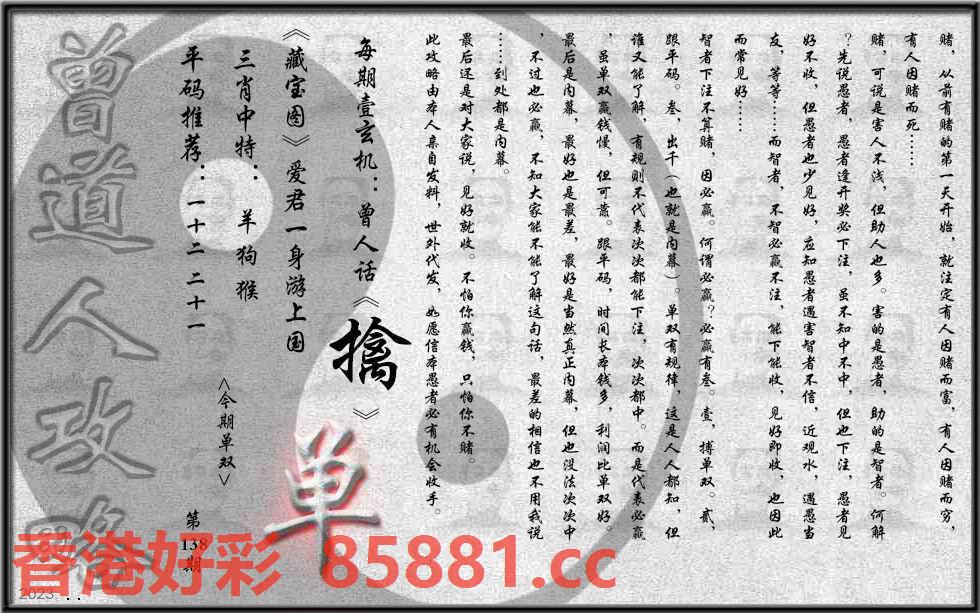 赌，从前有赌的第一天开始，就注定有人因赌而富，有人因赌而穷，
有人因赌而死……
赌，可说是害人不浅，但助人也多。害的是愚者，助的是智者。何解
？先说愚者，愚者逢开奖必下注，虽不知中不中，但也下注，愚者见
好不收，但愚者也少见好，应知愚者遇害智者不信，近观水，遇愚当
友，等等……而智者，不智必赢不注，能下能收，见好即收，也因此
而常见好……
智者下注不算赌，因必赢。何谓必赢？必赢有叁。壹，搏单双。贰，
跟平码。叁，出千（也就是内幕）。单双有规律，这是人人都知，但
谁又能了解，有规则不代表次次都能下注，次次都中。而是代表必赢
，虽单双赢钱慢，但可靠。跟平码，时间长本钱多，利润比单双好。
最后是内幕，最好也是最差，最好是当然真正内幕，但也没法次次中
，不过也必赢，不知大家能不能了解这句话，最差的相信也不用我说
……到处都是内幕。
最后还是对大家说，见好就收。不怕你赢钱，只怕你不赌。
此攻略由本人亲自发料，世外代发，如愿信本愚者必有机会收手。
每期壹玄机：曾人话《擒》
《藏宝图》爱君一身游上国
三肖中特：羊狗猴
平码推荐：一十二 二十一
<今期单双>
单
第
138
期
曾道人攻略
香港好彩 85881.cc
2023